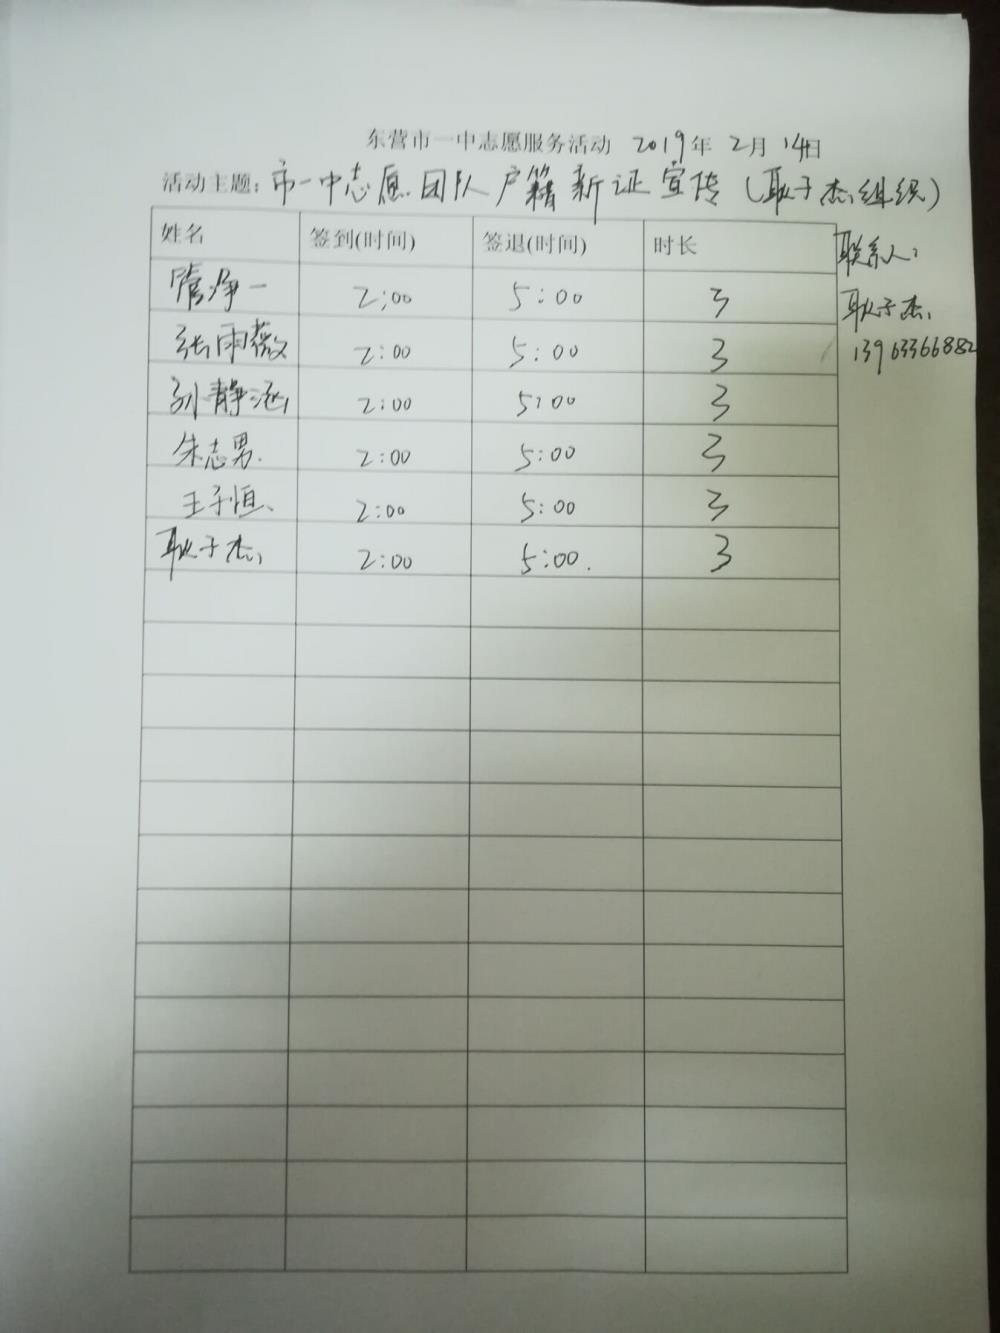 东营市一中志愿服务活动 2019年 2月 14日
活动主题：市一中志愿团队户籍新证宣传（耿子杰组织）
姓名 签到(时间) 签退(时间) 时长
联系人：
一 2:00 5:00 3
耿子杰
张雨薇 2:00 5:00 3
13963366882
孙静涵 2:00 5:00 3
朱志男 2:00 5:00 3
王子恒 2:00 5:00 3
耿子杰 2:00 5:00 3